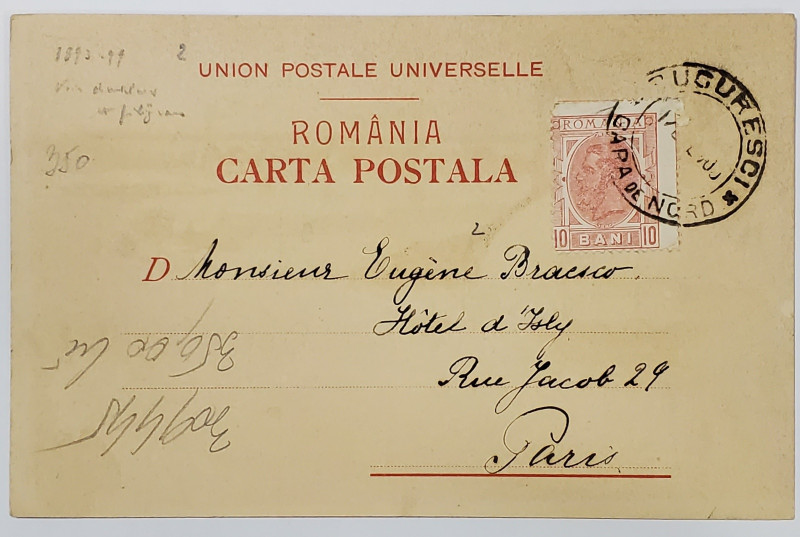 1893-99 2
UNION POSTALE UNIVERSELLE
ROMÂNIA
CARTA POSTALA
350
ROMANIA
10 BANI 10
BUCURESCI
GARA DE NORD
2
D Monsieur Eugène Bracsco
Hôtel d'Isly
Rue Jacob 29
Paris
350,00 lei